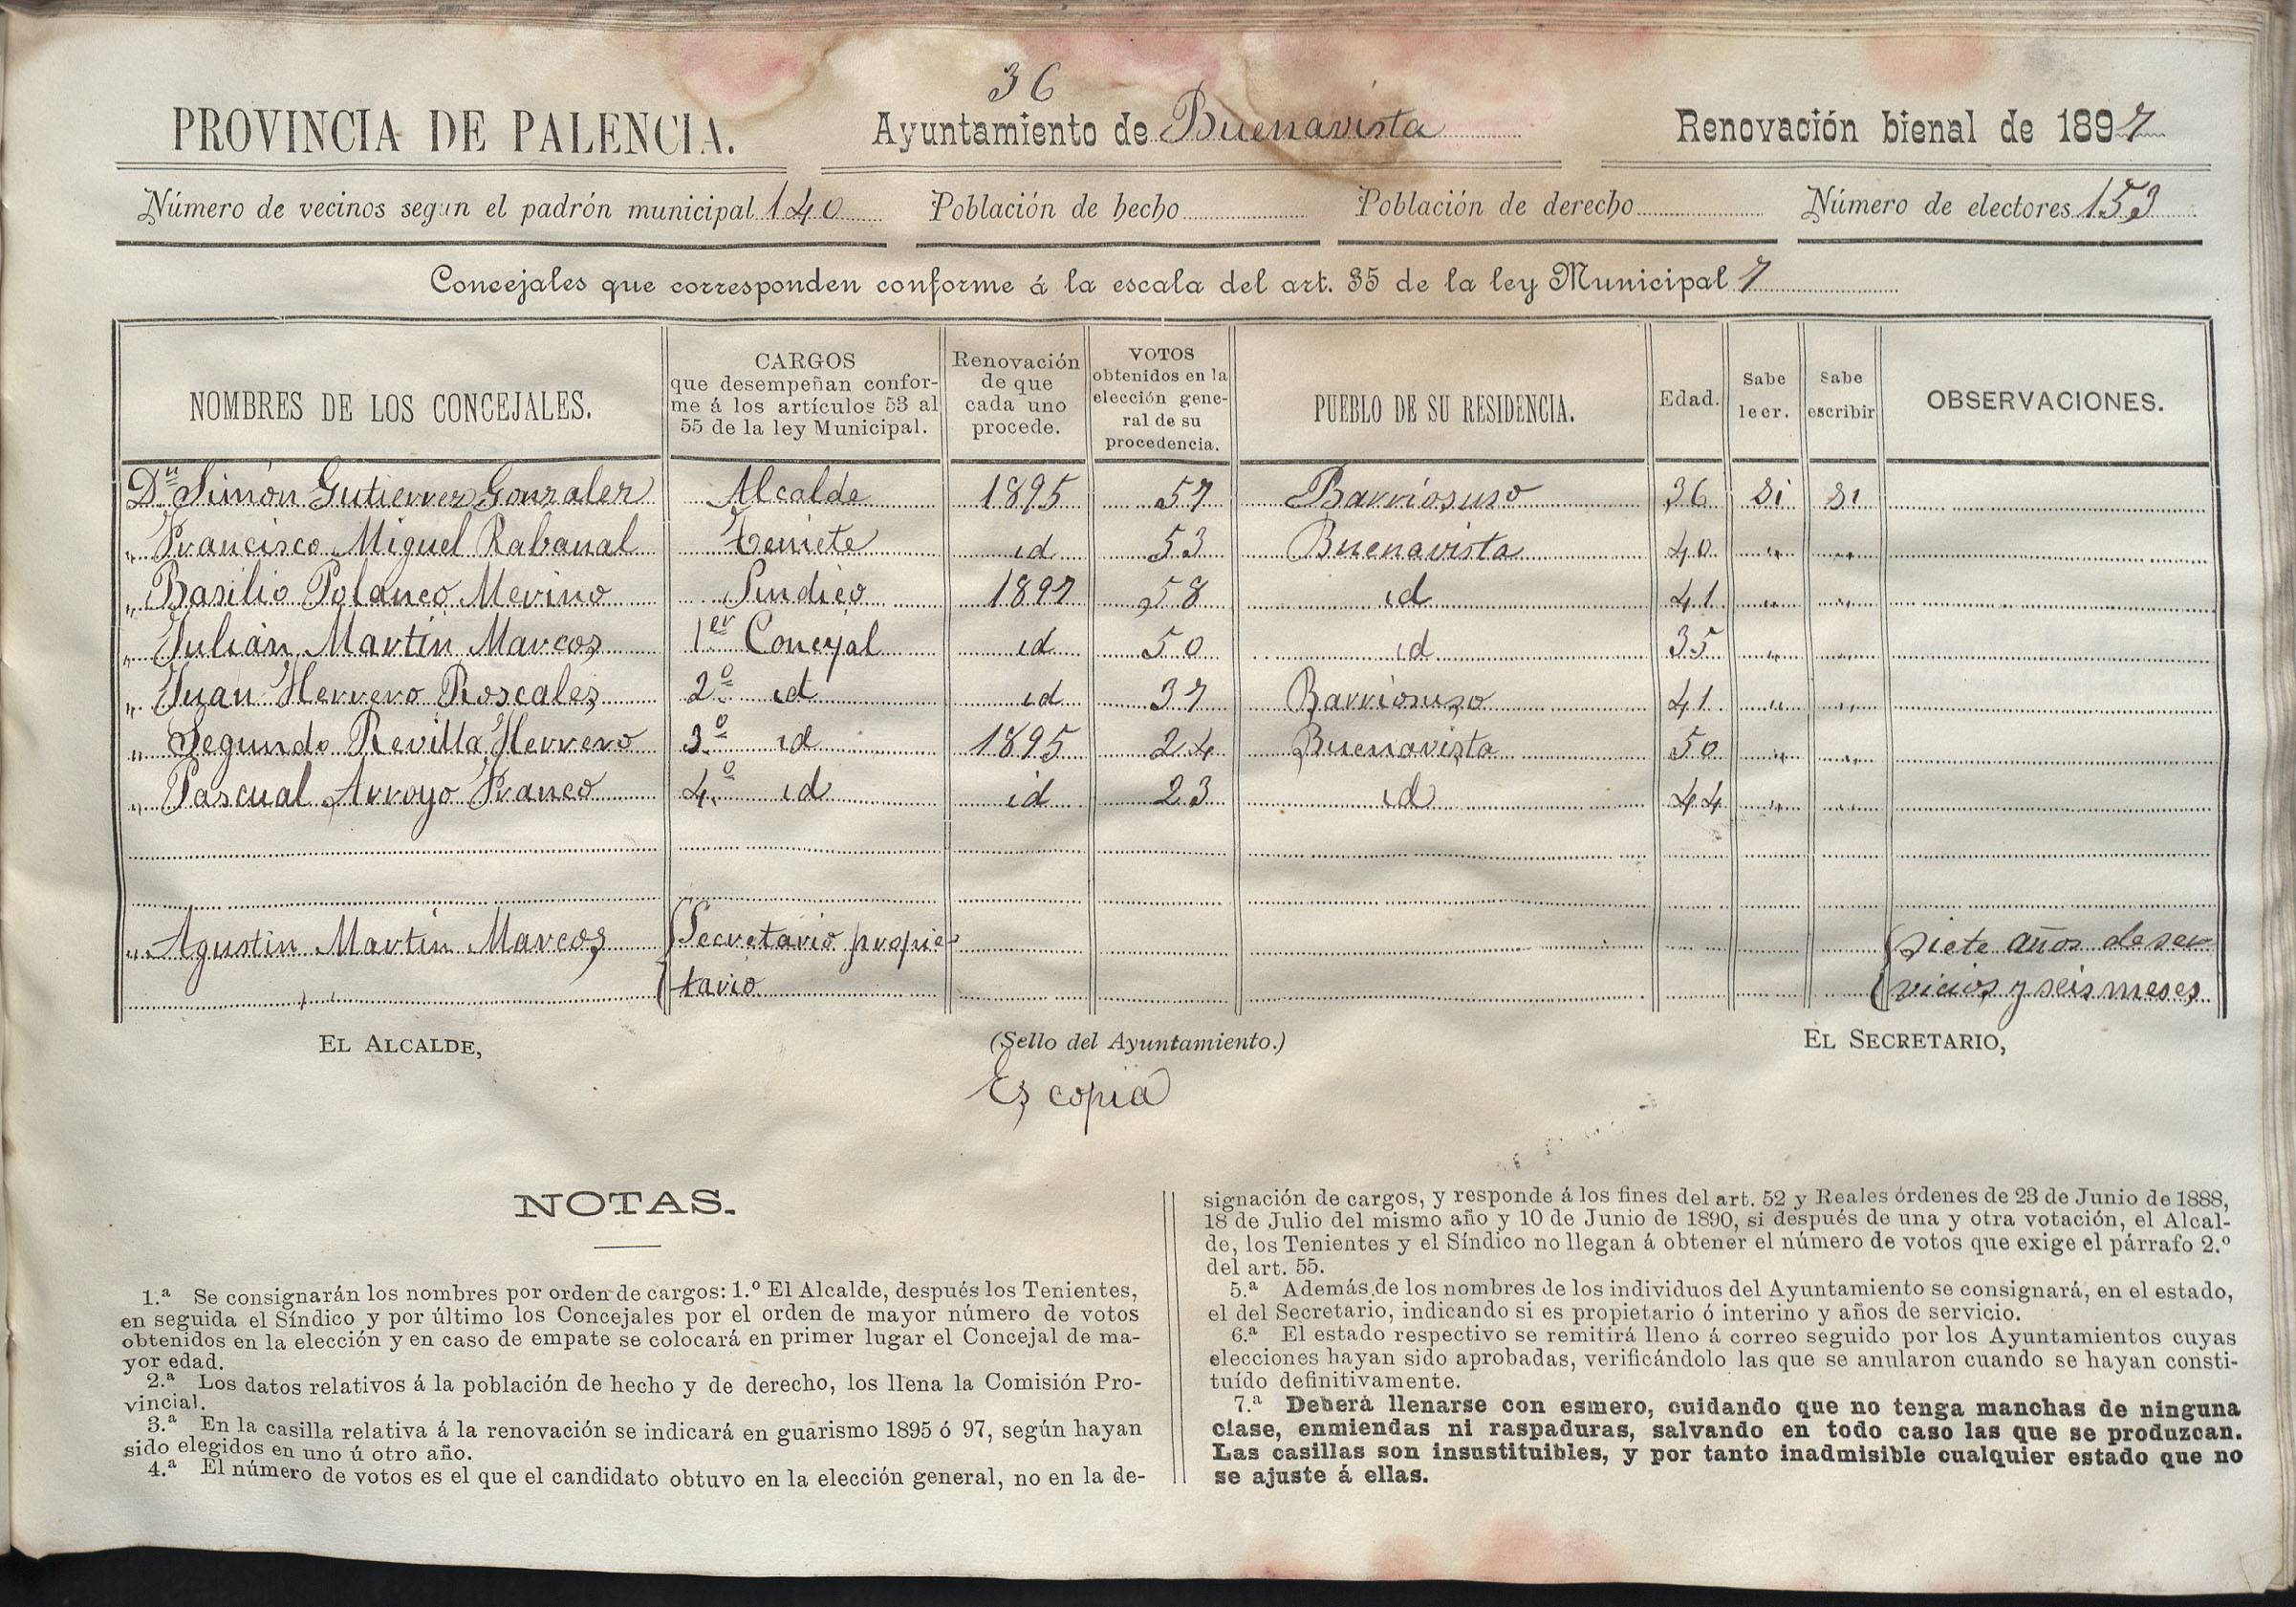 36
PROVINCIA DE PALENCIA. Ayuntamiento de Buenavista Renovación bienal de 1897
Número de vecinos según el padrón municipal 140 Población de hecho Población de derecho Número de electores 153
Concejales que corresponden conforme á la escala del art. 35 de la ley Municipal 7
NOMBRES DE LOS CONCEJALES. CARGOS que desempeñan confor- me á los artículos 53 al 55 de la ley Municipal. Renovación de que cada uno procede. VOTOS obtenidos en la elección gene- ral de su procedencia. PUEBLO DE SU RESIDENCIA. Edad. Sabe leer. Sabe escribir OBSERVACIONES.
Dn Simón Gutierrez Gonzalez Alcalde 1895 57 Barriosuso 36 si si
" Francisco Miguel Rabanal Teniete id 53 Buenavista 40 " "
" Basilio Polanco Merino Sindico 1897 58 id 41 " "
" Julián Martin Marcos 1er Concejal id 50 id 35 " "
" Juan Herrero Roscales 2º id id 37 Barriosuso 41 " "
" Segundo Revilla Herrero 3º id 1895 24 Buenavista 50 " "
" Pascual Arroyo Franco 4º id id 23 id 44 " "
" Agustin Martin Marcos Secretario propie- siete años de ser
tario vicios y seis meses
EL ALCALDE, (Sello del Ayuntamiento.) EL SECRETARIO,
Es copia
NOTAS.
1.ª Se consignarán los nombres por orden de cargos: 1.º El Alcalde, después los Tenientes,
en seguida el Síndico y por último los Concejales por el orden de mayor número de votos
obtenidos en la elección y en caso de empate se colocará en primer lugar el Concejal de ma-
yor edad.
2.ª Los datos relativos á la población de hecho y de derecho, los llena la Comisión Pro-
vincial.
3.ª En la casilla relativa á la renovación se indicará en guarismo 1895 ó 97, según hayan
sido elegidos en uno ú otro año.
4.ª El número de votos es el que el candidato obtuvo en la elección general, no en la de-
signación de cargos, y responde á los fines del art. 52 y Reales órdenes de 23 de Junio de 1888,
18 de Julio del mismo año y 10 de Junio de 1890, si después de una y otra votación, el Alcal-
de, los Tenientes y el Síndico no llegan á obtener el número de votos que exige el párrafo 2.º
del art. 55.
5.ª Además de los nombres de los individuos del Ayuntamiento se consignará, en el estado,
el del Secretario, indicando si es propietario ó interino y años de servicio.
6.ª El estado respectivo se remitirá lleno á correo seguido por los Ayuntamientos cuyas
elecciones hayan sido aprobadas, verificándolo las que se anularon cuando se hayan consti-
tuído definitivamente.
7.ª Deberá llenarse con esmero, cuidando que no tenga manchas de ninguna
clase, enmiendas ni raspaduras, salvando en todo caso las que se produzcan.
Las casillas son insustituibles, y por tanto inadmisible cualquier estado que no
se ajuste á ellas.